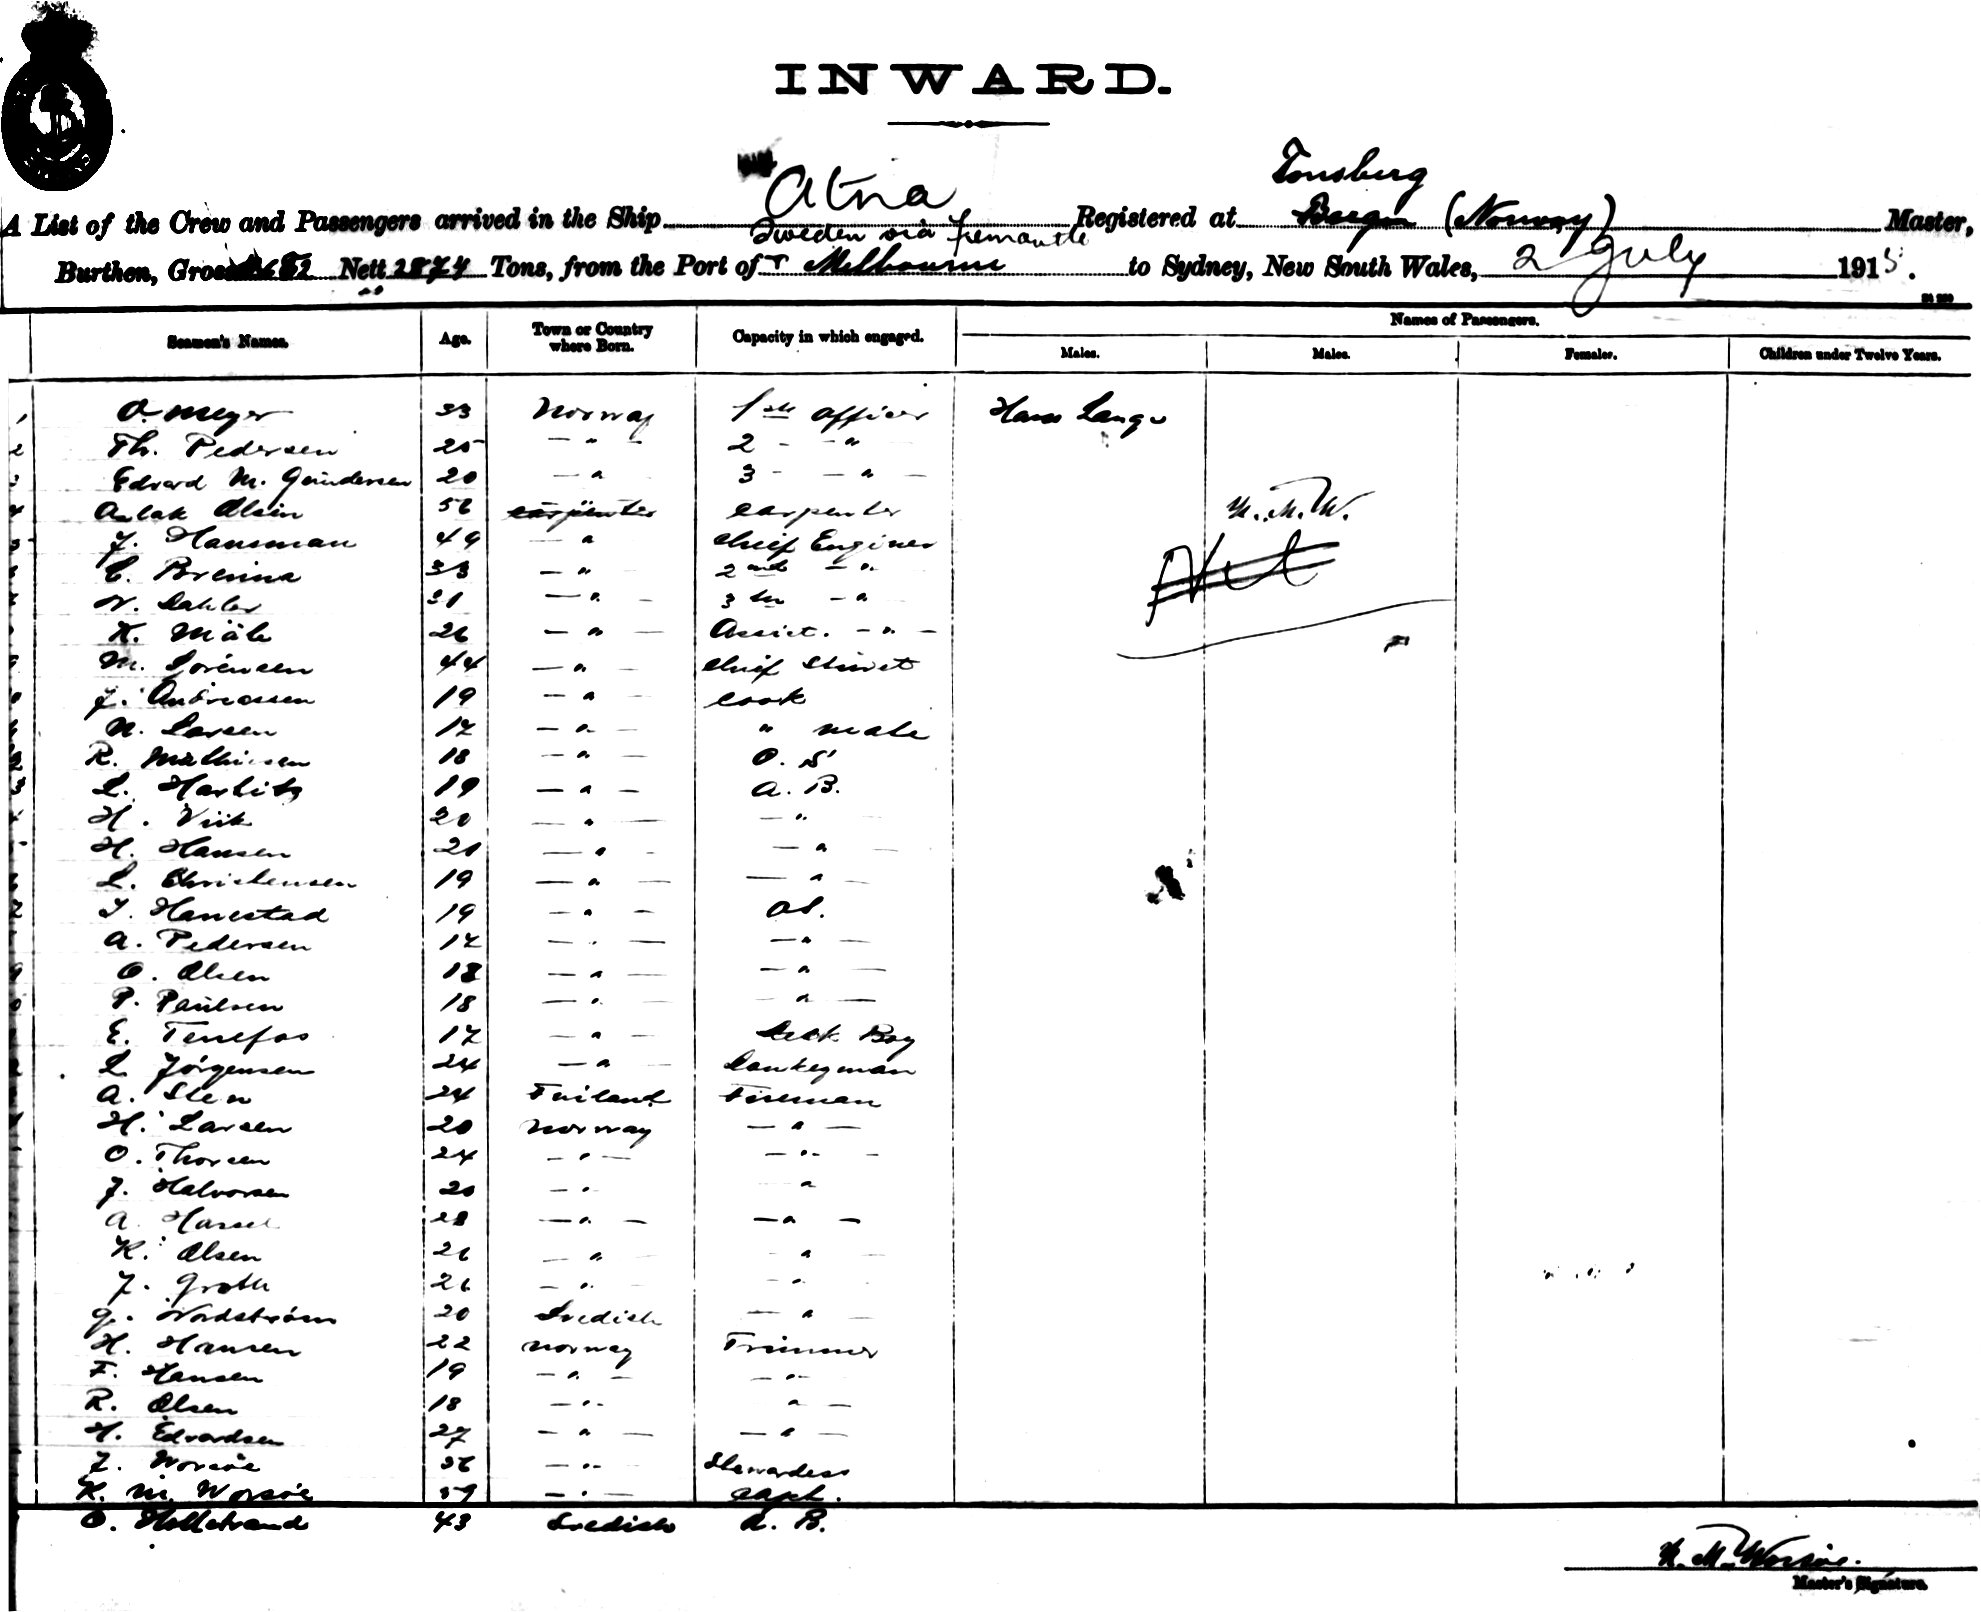 INWARD.
Tonsberg
A List of the Crew and Passengers arrived in the Ship Atna Registered at Bergen (Norway) Master,
Sweden via Fremantle
Burthen, Gross Nett 2874 Tons, from the Port of Melbourne to Sydney, New South Wales, 2 July 1915.
Seamen's Names. Age. Town or Country where Born. Capacity in which engaged. Names of Passengers.
Males. Males. Females. Children under Twelve Years.
1 O. Meyer 33 Norway 1ste officer Hans Lange
2 Th. Pedersen 25 — " — 2 - — "
3 Edvard M. Gundersen 20 — " 3 - — " —
4 Aslak Olsen 56 carpenter carpenter K. M. W.
5 J. Hansman 49 — " chief Enginer Nil
C. Brenna 33 — " 2nd — "
N. Dahler 31 — " — 3 — "
K. Mäle 26 — " — Assist. — " —
9 M. Sørensen 44 — " — chief
J. Andreassen 19 — " — cook
N. Larsen 17 — " — " mate
R. Mathiesen 18 — " — O. S.
L. Harbitz 19 — " — A. B.
H. Viik 20 — " — — "
H. Hansen 21 — " — — " —
L. Christensen 19 — " — — " —
J. Hanestad 19 — " — O.S.
A. Pedersen 17 — " — — " —
9 O. Olsen 18 — " — — " —
P. Paulsen 18 — " — — " —
E. Tenefos 17 — " — Deck Boy
L. Jörgensen 24 — " — Donkeyman
A. Sten 24 Finland Fireman
H. Larsen 20 Norway — " —
O. Thorsen 24 — " — — " —
J. Halvorsen 20 — " "
A. Hassel — " — — " —
K. Olsen 26 — " "
J. Groth 26 — " — "
G. Nordstrøm 20 Svedish — " —
H. Hansen 22 Norway Trimmer
F. Hansen 19 — " — — "
R. Olsen 18 — " — " —
H. Edvardsen 27 — " — — " —
J. Worsöe 56 — " — Stewardess
K. M. Worsöe 59 — " — Capt.
O. Hillstrand 43 Svedish A. B.
K. M. Worsöe.
Master's Signature.